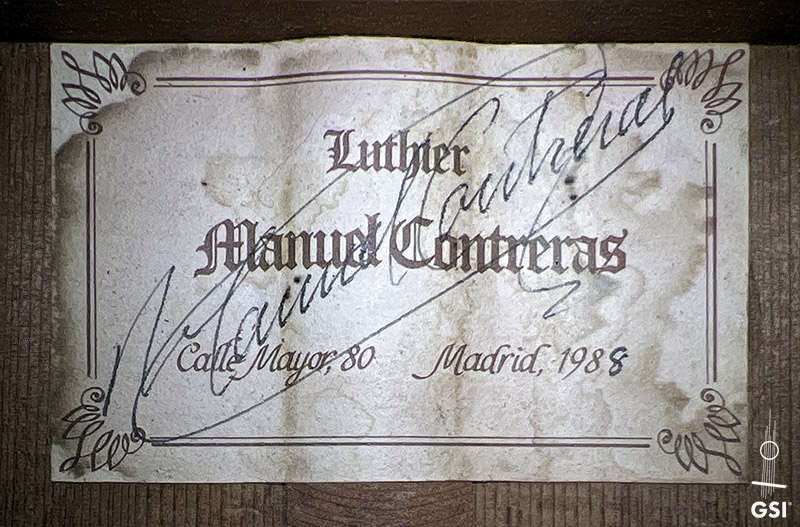 Luthier
Manuel Contreras
Manuel Contreras
Calle Mayor, 80 Madrid, 1988
GSI